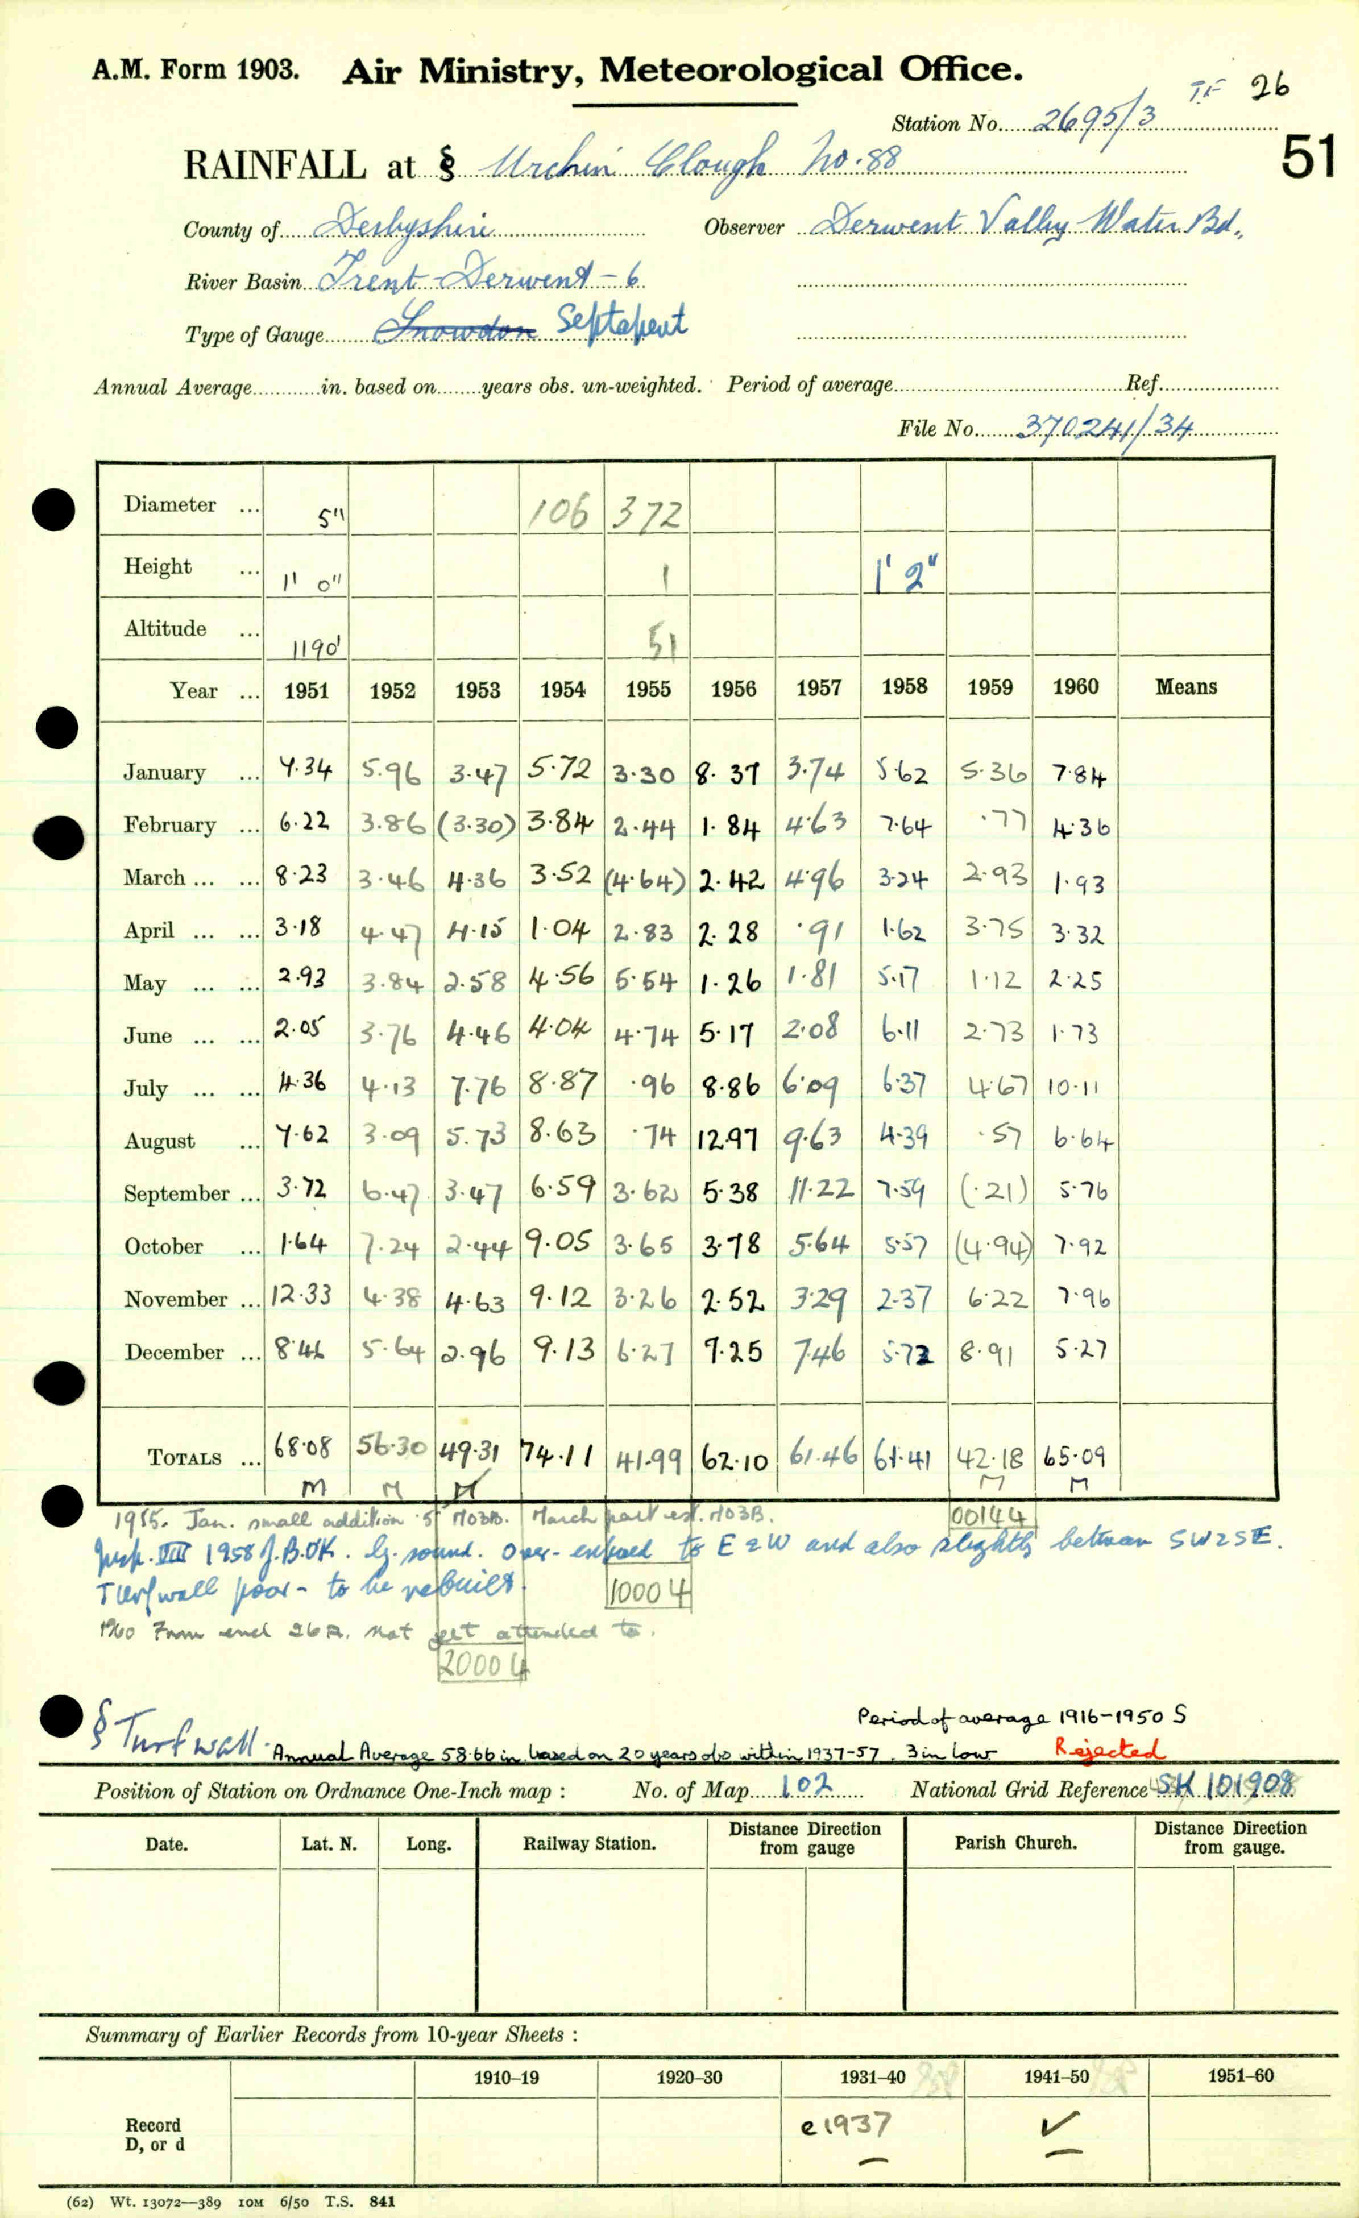 A.M. Form 1903. Air Ministry, Meteorological Office.
26
Station No. 2695/3
51
RAINFALL at § Urchin Clough No. 88
County of Derbyshire Observer Derwent Valley Water Bd.
River Basin Trent-Derwent-6
Type of Gauge Snowdon Septapent
Annual Average in. based on years obs. un-weighted. Period of average Ref.
File No. 370241/34
Diameter ... 5" 106 372
Height ... 1' 0" 1 1' 2"
Altitude ... 1190' 51
Year ... 1951 1952 1953 1954 1955 1956 1957 1958 1959 1960 Means
January ... 7.34 5.96 3.47 5.72 3.30 8.37 3.74 5.62 5.36 7.84
February ... 6.22 3.86 (3.30) 3.84 2.44 1.84 4.63 7.64 .77 4.36
March ... ... 8.23 3.46 4.36 3.52 (4.64) 2.42 4.96 3.24 2.93 1.93
April ... ... 3.18 4.47 4.15 1.04 2.83 2.28 .91 1.62 3.75 3.32
May ... ... 2.93 3.84 2.58 4.56 5.54 1.26 1.81 5.17 1.12 2.25
June ... ... 2.05 3.76 4.46 4.04 4.74 5.17 2.08 6.11 2.73 1.73
July ... ... 4.36 4.13 7.76 8.87 .96 8.86 6.09 6.37 4.67 10.11
August ... 7.62 3.09 5.73 8.63 .74 12.97 9.63 4.39 .57 6.64
September ... 3.72 6.47 3.47 6.59 3.62 5.38 11.22 7.59 (.21) 5.76
October ... 1.64 7.24 2.44 9.05 3.65 3.78 5.64 5.57 (4.94) 7.92
November ... 12.33 4.38 4.63 9.12 3.26 2.52 3.29 2.37 6.22 7.96
December ... 8.46 5.64 2.96 9.13 6.27 7.25 7.46 5.72 8.91 5.27
TOTALS ... 68.08 56.30 49.31 74.11 41.99 62.10 61.46 61.41 42.18 65.09
M M M M M
1955. Jan. small addition M03B. March part est. M03B. 00144
Insp. VIII 1958 J.B. OK. Lg. sound. Over-exposed to E & W and also slightly between SW & SE.
Turf wall poor - to be rebuilt. 10004
1960 From encl 26A. not yet attended to.
20004
§ Turf wall.
Period of average 1916-1950 S
Annual Average 58.66 in based on 20 years obs within 1937-57. 3 in low Rejected
Position of Station on Ordnance One-Inch map : No. of Map 102 National Grid Reference SK 101908
Date. Lat. N. Long. Railway Station. Distance Direction from gauge Parish Church. Distance Direction from gauge.
Summary of Earlier Records from 10-year Sheets :
1910–19 1920–30 1931–40 1941–50 1951–60
Record D, or d e1937 ✓
(62) Wt. 13072—389 10M 6/50 T.S. 841